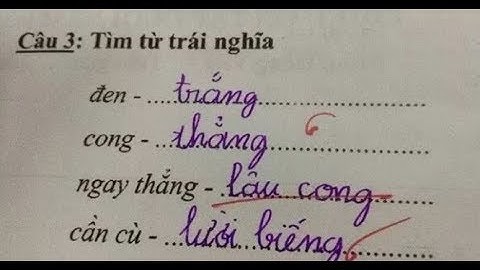 Câu 3: Tìm từ trái nghĩa
đen - ....trắng..........................
cong - ...thẳng........................
ngay thẳng - ..lâu cong......
cần cù - ...lười biếng............